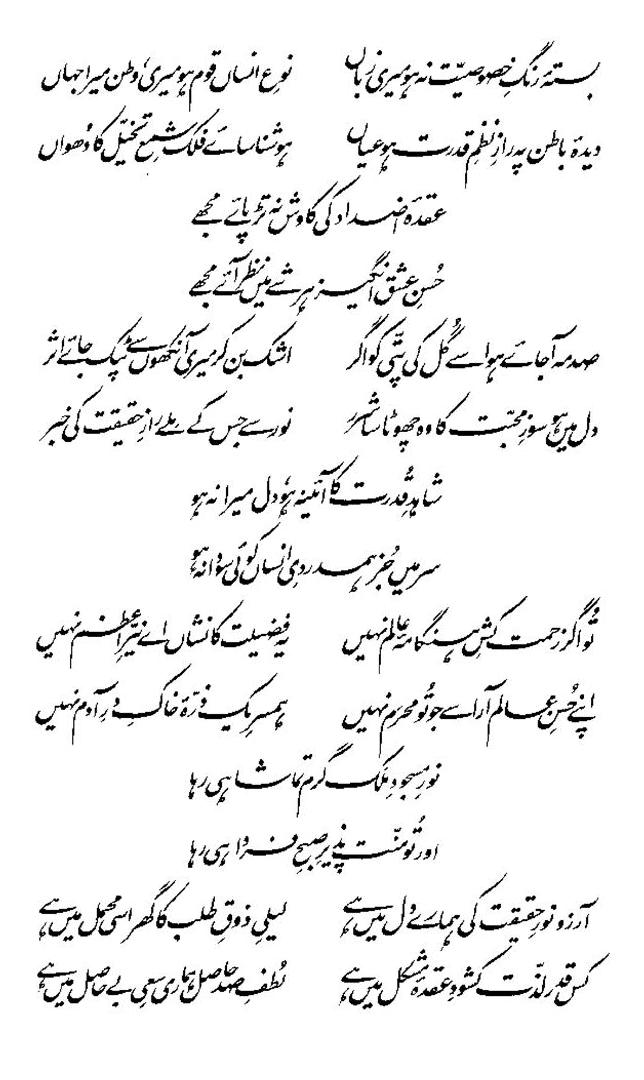 بستۂ رنگِ خصوصیّت نہ ہو میری زباں نوعِ انساں قوم ہو میری، وطن میرا جہاں
دیدۂ باطن پہ رازِ نظمِ قدرت ہو عیاں ہو شناسائے فلک شمعِ تخیّل کا دُھواں
عقدۂ اضداد کی کاوش نہ تڑپائے مجھے
حُسنِ عشق انگیز ہر شے میں نظر آئے مجھے
صدمہ آ جائے ہوا سے گُل کی پتّی کو اگر اشک بن کر میری آنکھوں سے ٹپک جائے اثر
دل میں ہو سوزِ محبّت کا وہ چھوٹا سا شرر نور سے جس کے ملے رازِ حقیقت کی خبر
شاہدِ قُدرت کا آئینہ ہو، دل میرا نہ ہو
سر میں جُز ہمدردیِ انساں کوئی سودا نہ ہو
تُو اگر زحمت کشِ ہنگامۂ عالم نہیں یہ فضیلت کا نشاں اے نیّرِ اعظم نہیں
اپنے حُسنِ عالم آرا سے جو تُو محرم نہیں ہمسرِ یک ذرّۂ خاکِ درِ آدم نہیں
نورِ مسجودِ ملک گرمِ تماشا ہی رہا
اور تُو منّت پذیرِ صبحِ فردا ہی رہا
آرزو نورِ حقیقت کی ہمارے دل میں ہے لیلیِ ذوقِ طلب کا گھر اسی محمل میں ہے
کس قدر لذّت کشودِ عقدۂ مشکل میں ہے لُطفِ صد حاصل ہماری سعیِ بے حاصل میں ہے